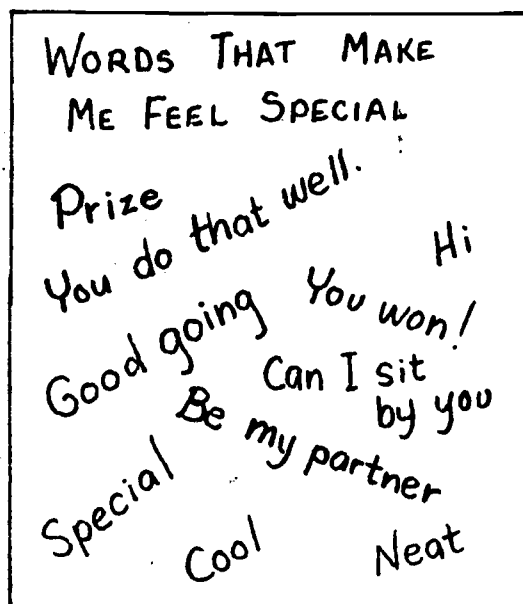 WORDS THAT MAKE
ME FEEL SPECIAL
Prize
You do that well.
Hi
You won!
Good going
Can I sit
by you
Be my partner
Special
Cool
Neat